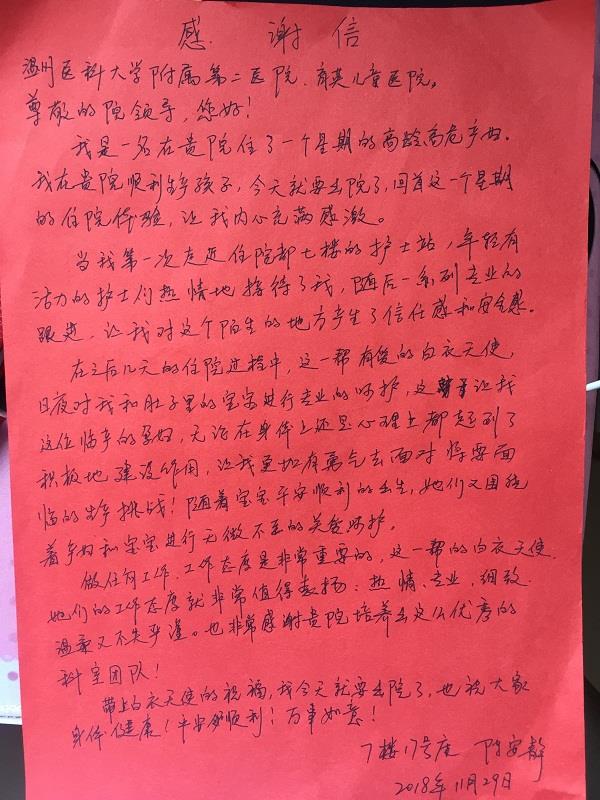 感谢信
温州医科大学附属第二医院、育英儿童医院。
尊敬的院领导,您好!
我是一名在贵院住了一个星期的高龄高危产妇。
我在贵院顺利生产孩子,今天就要出院了,回首这一个星期
的住院体验,让我内心充满感激。
当我第一次走进住院部七楼的护士站,年轻有
活力的护士们热情地接待了我,随后一系列专业的
跟进,让我对这个陌生的地方产生了信任感和安全感。
在之后几天的住院过程中,这一帮有爱的白衣天使,
日夜对我和肚子里的宝宝进行专业的呵护,这让我
这位临产的孕妇,无论在身体上还是心理上都起到了
积极地建设作用,让我更加有勇气去面对将要面
临的生产挑战!随着宝宝平安顺利的出生,她们又围绕
着产妇和宝宝进行无微不至的关爱呵护。
做任何工作,工作态度是非常重要的,这一帮的白衣天使,
她们的工作态度就非常值得表扬:热情、专业、细致、
温柔又不失严谨。也非常感谢贵院培养出这么优秀的
科室团队!
带上白衣天使的祝福,我今天就要出院了,也祝大家
身体健康!平安顺利!万事如意!
7楼17号床 陈安静
2018年11月29日